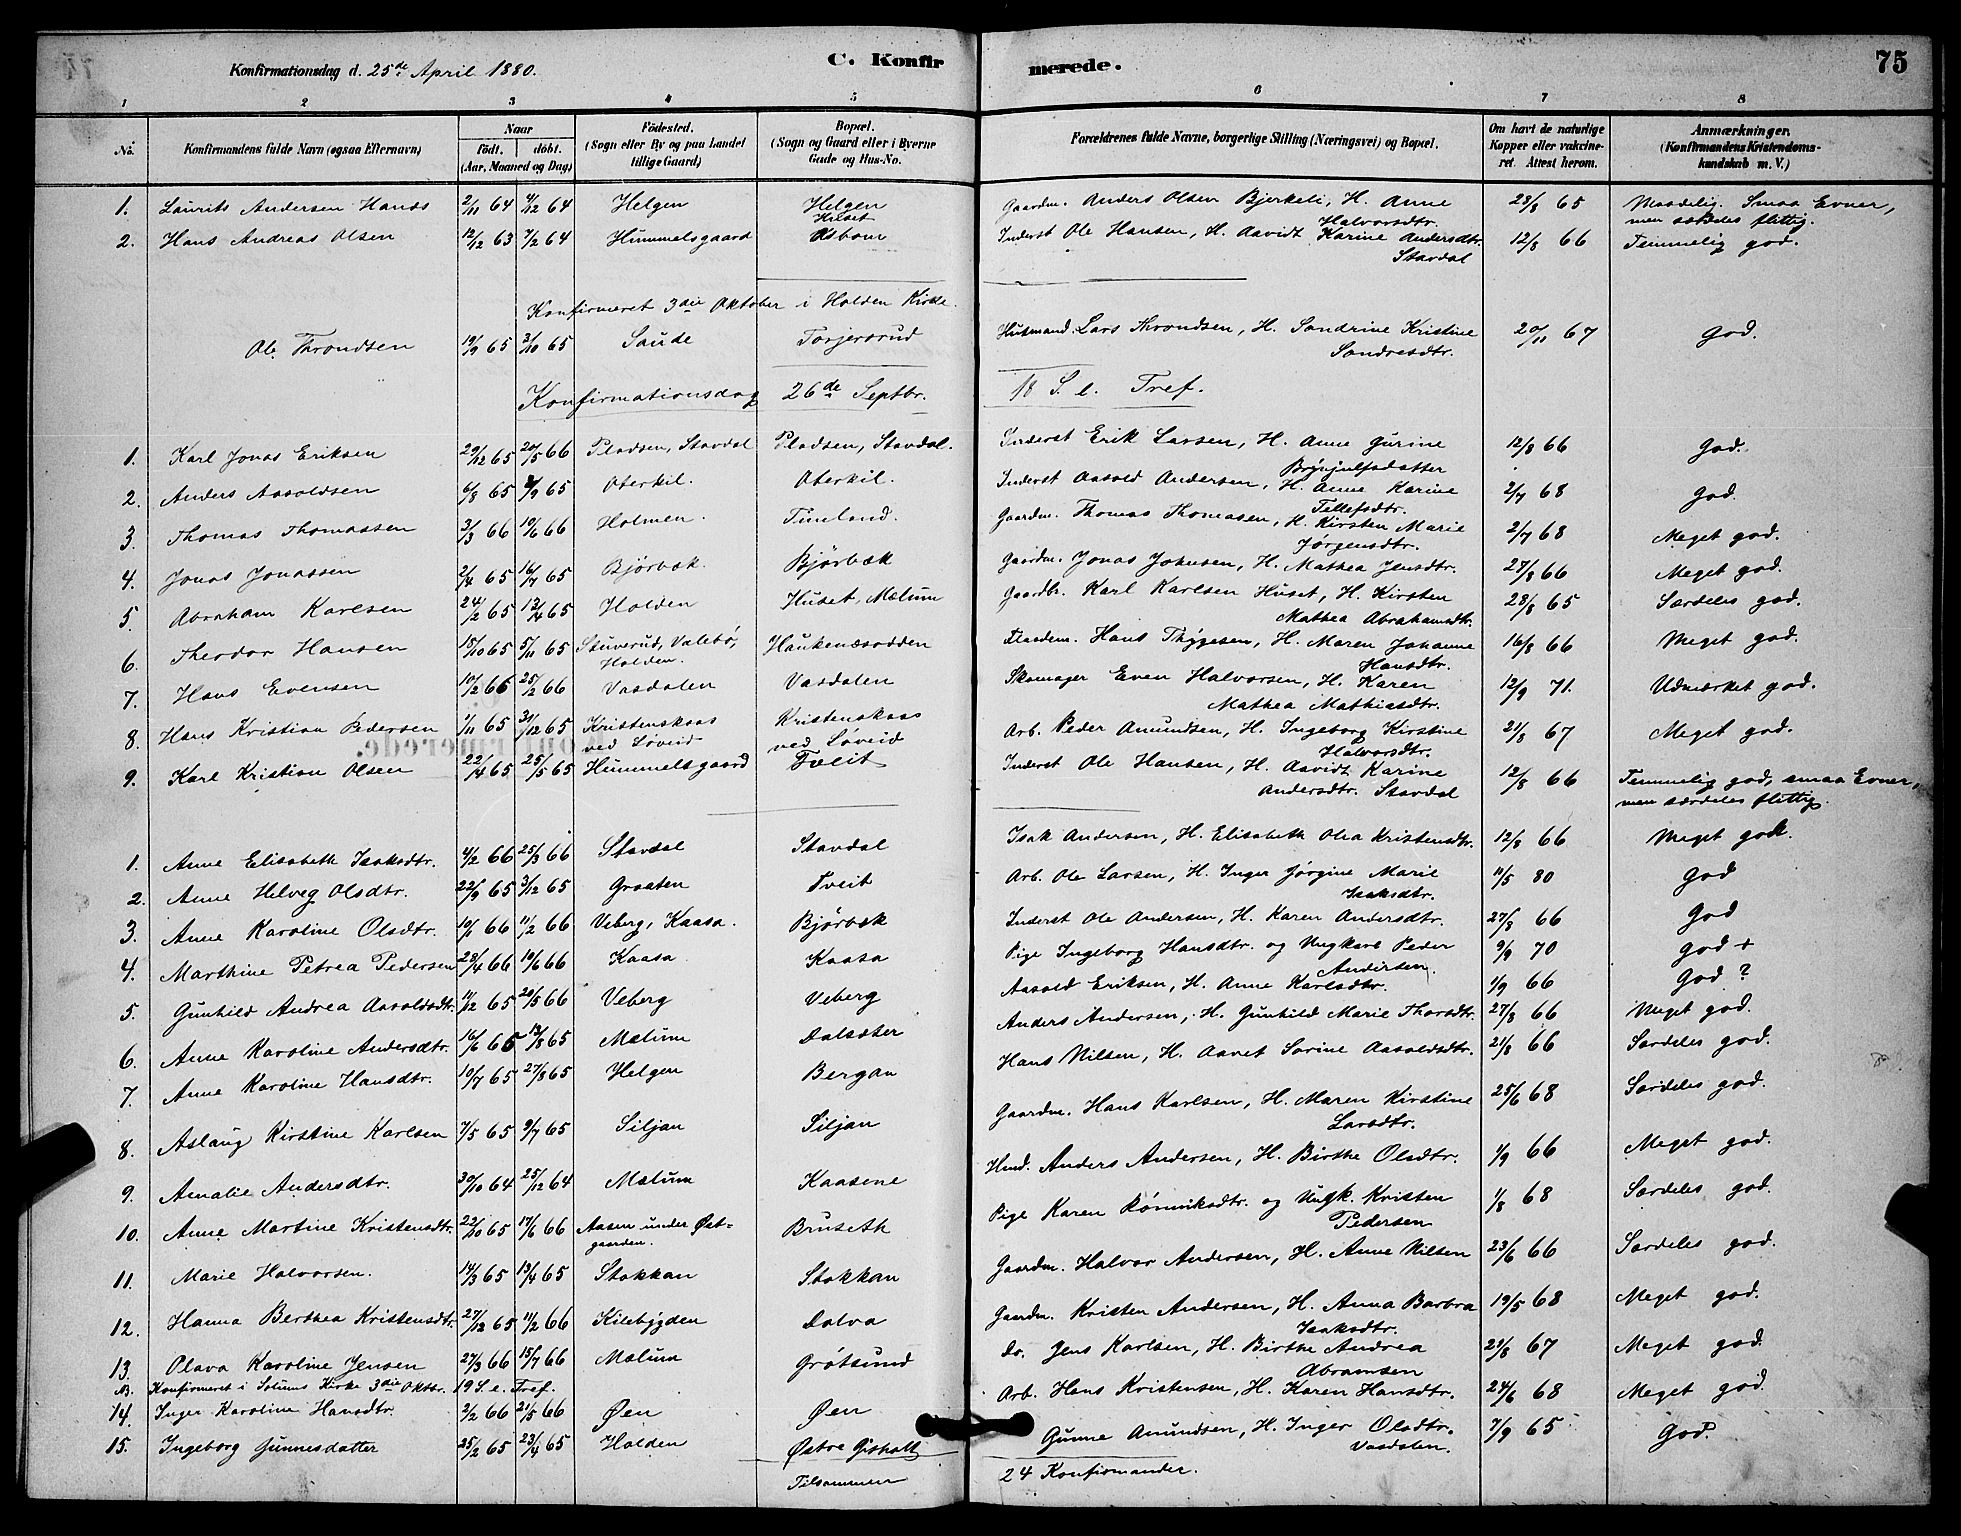 Konfirmationsdag d. 25de April 1880. C. Konfirmerede. 75
1 2 3 4 5 6 7 8
No. Konfirmandens fulde Navn (ogsaa Efternavn) Naar födt. döbt. (Aar, Maaned og Dag) Födested. (Sogn eller By og paa Landet tillige Gaard) Bopæl. (Sogn og Gaard eller i Byerne Gade og Hus-No. Forældrenes fulde Navne, borgerlige Stilling (Næringsvei) og Bopæl. Om havt de naturlige Kopper eller vakcineret. Attest herom. Anmærkninger. (Konfirmandens Kristendomskundskab m. V.)
1. Laurits Andersen Hands 2/11 64 4/12 64 Helgen Helgen Gaardm. Anders Olsen Bjerkeli, H. Anne Halvorsdtr. 23/8 65 Maadelig. Smaa Evner, men særdeles flittig.
2. Hans Andreas Olsen 12/12 63 7/2 64 Hummelsgaard Huset Asbom Inderst Ole Hansen, H. Aavidt Karine Andersdtr. Stavdal 12/8 66 Temmelig god.
Konfirmeret 3die Oktober i Holden Kirke.
Ole Throndsen 19/9 65 3/10 65 Saude Torjersrud Husmand. Lars Throndsen, H. Sondrine Kristine Sondresdtr. 20/11 67 God.
Konfirmationsdag 26de Septbr. 18 S. e. Tref.
1. Karl Jonas Eriksen 29/12 65 20/5 66 Pladsen, Stavdal Pladsen, Stavdal. Inderst Erik Larsen, H. Anne Gurine Brynjulfsdatter 12/8 66 God.
2. Anders Aasoldsen 6/8 65 8/9 65 Oterkil. Oterkil. Inderst Aasold Andersen, H. Anne Karine Tellefsdtr. 2/7 68 God.
3. Thomas Thomassen 3/3 66 10/6 66 Holmen. Tunland. Gaardm. Thomas Thomasen, H. Kirsten Marie Jørgensdtr. 2/7 68 Meget god.
4. Jonas Jonassen 2/4 65 16/7 65 Bjørbæk. Bjørbæk Gaardm. Jonas Johnsen, H. Mathea Jensdtr. 27/8 66 Meget god.
5. Abraham Karlsen 24/2 65 12/4 65 Holden Huset, Mælum Gaardbr. Karl Karlsen Huset, H. Kirsten Mathea Abrahamsdtr. 28/8 65 Særdeles god.
6. Theodor Hansen 15/10 65 5/11 65 Stuverud, Valebø, Holden. Haukenæsodden Hans Thygesen, H. Maren Johanne Hansdtr. 16/8 66 Meget god.
7. Hans Evensen 10/2 66 25/2 66 Vasdalen Vasdalen Skomager Even Halvorsen, H. Karen Mathea Mathiasdtr. 12/9 71. Udmærket god.
8. Hans Kristian Pedersen 1/11 65 31/12 65 Kristenskaas ved Løveid Kristenskaas ved Løveid Arb. Peder Amundsen, H. Ingeborg Kirstine Halvorsdtr. 21/8 67 Meget god.
9. Karl Kristian Olsen 22/4 65 25/5 65 Hummelsgaard Tveit Inderst Ole Hansen, H. Aavidt Karine Andersdtr. Stavdal 12/8 66 Temmelig god, smaa Evner, men særdeles flittig.
1. Anne Elisabeth Isaksdtr. 4/2 66 25/3 66 Stavdal Stavdal Isak Andersen, H. Elisabeth Olea Kristensdtr. 12/8 66 Meget godt.
2. Anne Helveg Olsdtr. 22/9 65 3/12 65 Graaten Tveit Arb. Ole Larsen, H. Inger Jørgine Marie Isaksdtr. 11/5 80 God
3. Anne Karoline Olsdtr. 10/1 66 11/2 66 Veberg, Kaasa. Bjørbæk Inderst Ole Andersen, H. Karen Andersdtr. 27/8 66 God
4. Marthine Petrea Pedersen 28/4 66 10/6 66 Kaasa Kaasa Pige Ingeborg Hansdtr. og Ungkarl Peder Andersen. 9/9 70 god +
5. Gunhild Andrea Aasoldsdtr. 11/12 65 20/5 66 Veberg Veberg Aasold Eriksen, H. Anne Karlsdtr. 1/9 66 God ?
6. Anne Karoline Andersdtr. 16/6 65 13/8 65 Mælum Dalsæter Anders Andersen, H. Gunhild Marie Thorsdtr. 27/8 66 Meget god.
7. Anne Karoline Hansdtr. 10/7 65 27/8 65 Helgen Bergan Hans Nilsen, H. Aavet Sorine Aasoldsdtr. 21/8 66 Særdeles god.
8. Aslaug Kirstine Karlsen 7/5 65 9/7 65 Siljan Siljan Gaardm. Hans Karlsen, H. Maren Kirstine Larsdtr. 25/6 68 Særdeles god.
9. Amalie Andersdtr. 30/10 64 25/12 64 Mælum Kaasene Hmd. Anders Andersen, H. Birthe Olsdtr. 1/9 66 Meget god.
10. Anne Martine Kristensdtr. 22/10 65 17/6 66 Aasen under Østgaarden. Bruseth Pige Karen Rønniksdtr. og Ungk. Kristen Pedersen 1/8 68 Særdeles god.
11. Marie Halvorsen. 14/3 65 13/4 65 Stokkan Stokkan Gaardm. Halvor Andersen, H. Anne Nilsen 23/6 66 Særdeles god.
12. Hanna Berthea Kristensdtr. 27/12 65 11/2 66 Kilebygden Dalva Gaardm. Kristen Andersen, H. Anna Barbra Isaksdtr. 19/5 68 Meget god.
13. Olava Karoline Jensen 27/3 66 15/7 66 Mælum Grøtsund Do. Jens Karlsen, H. Birthe Andrea Abramsen 22/8 67 Meget god.
Konfirmeret i Solums Kirke 3die Oktbr. 19 S. e. Tref.
14. Inger Karoline Hansdtr. 2/2 66 21/5 66 Øen Øen Arb. Hans Kristensen, H. Karen Hansdtr. 24/6 68 Meget god.
15. Ingeborg Gunnesdatter 25/2 65 23/4 65 Holden Østre Gisholt Gunne Amundsen, H. Inger Olsdtr. Vasdalen. 7/9 65 God.
Tilsammen 24 Konfirmander.